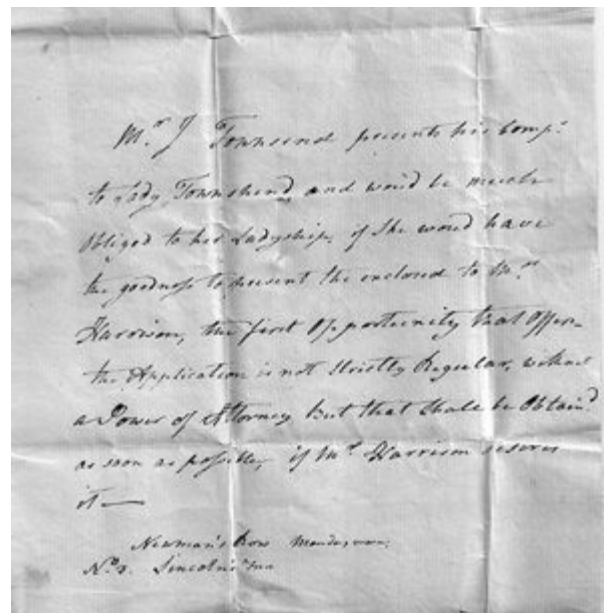 Mr. J Townsend presents his Compts.
to Lady Townshend, and wou'd be much
Obliged to her Ladyship, if She would have
the goodness to present the enclosed to Mr.
Harrison, the first Opportunity that Offers
the Application is not Strictly Regular, without
a Power of Attorney but that Shall be Obtain'd
as soon as possible, if Mr. Harrison desires
it —
Newman's Row Monday
No. 2. Lincoln's Inn